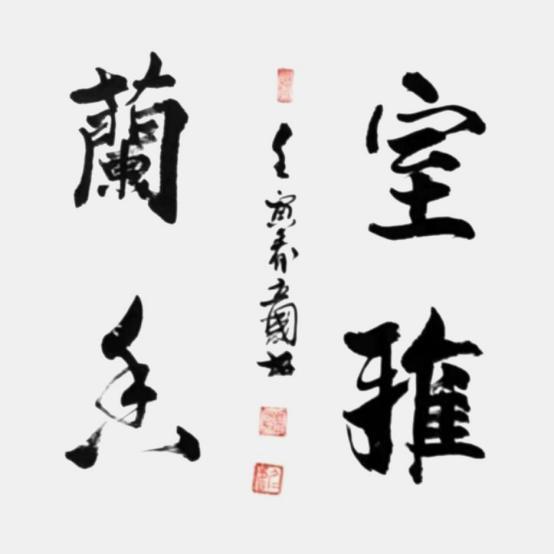 室雅
蘭香
壬寅春